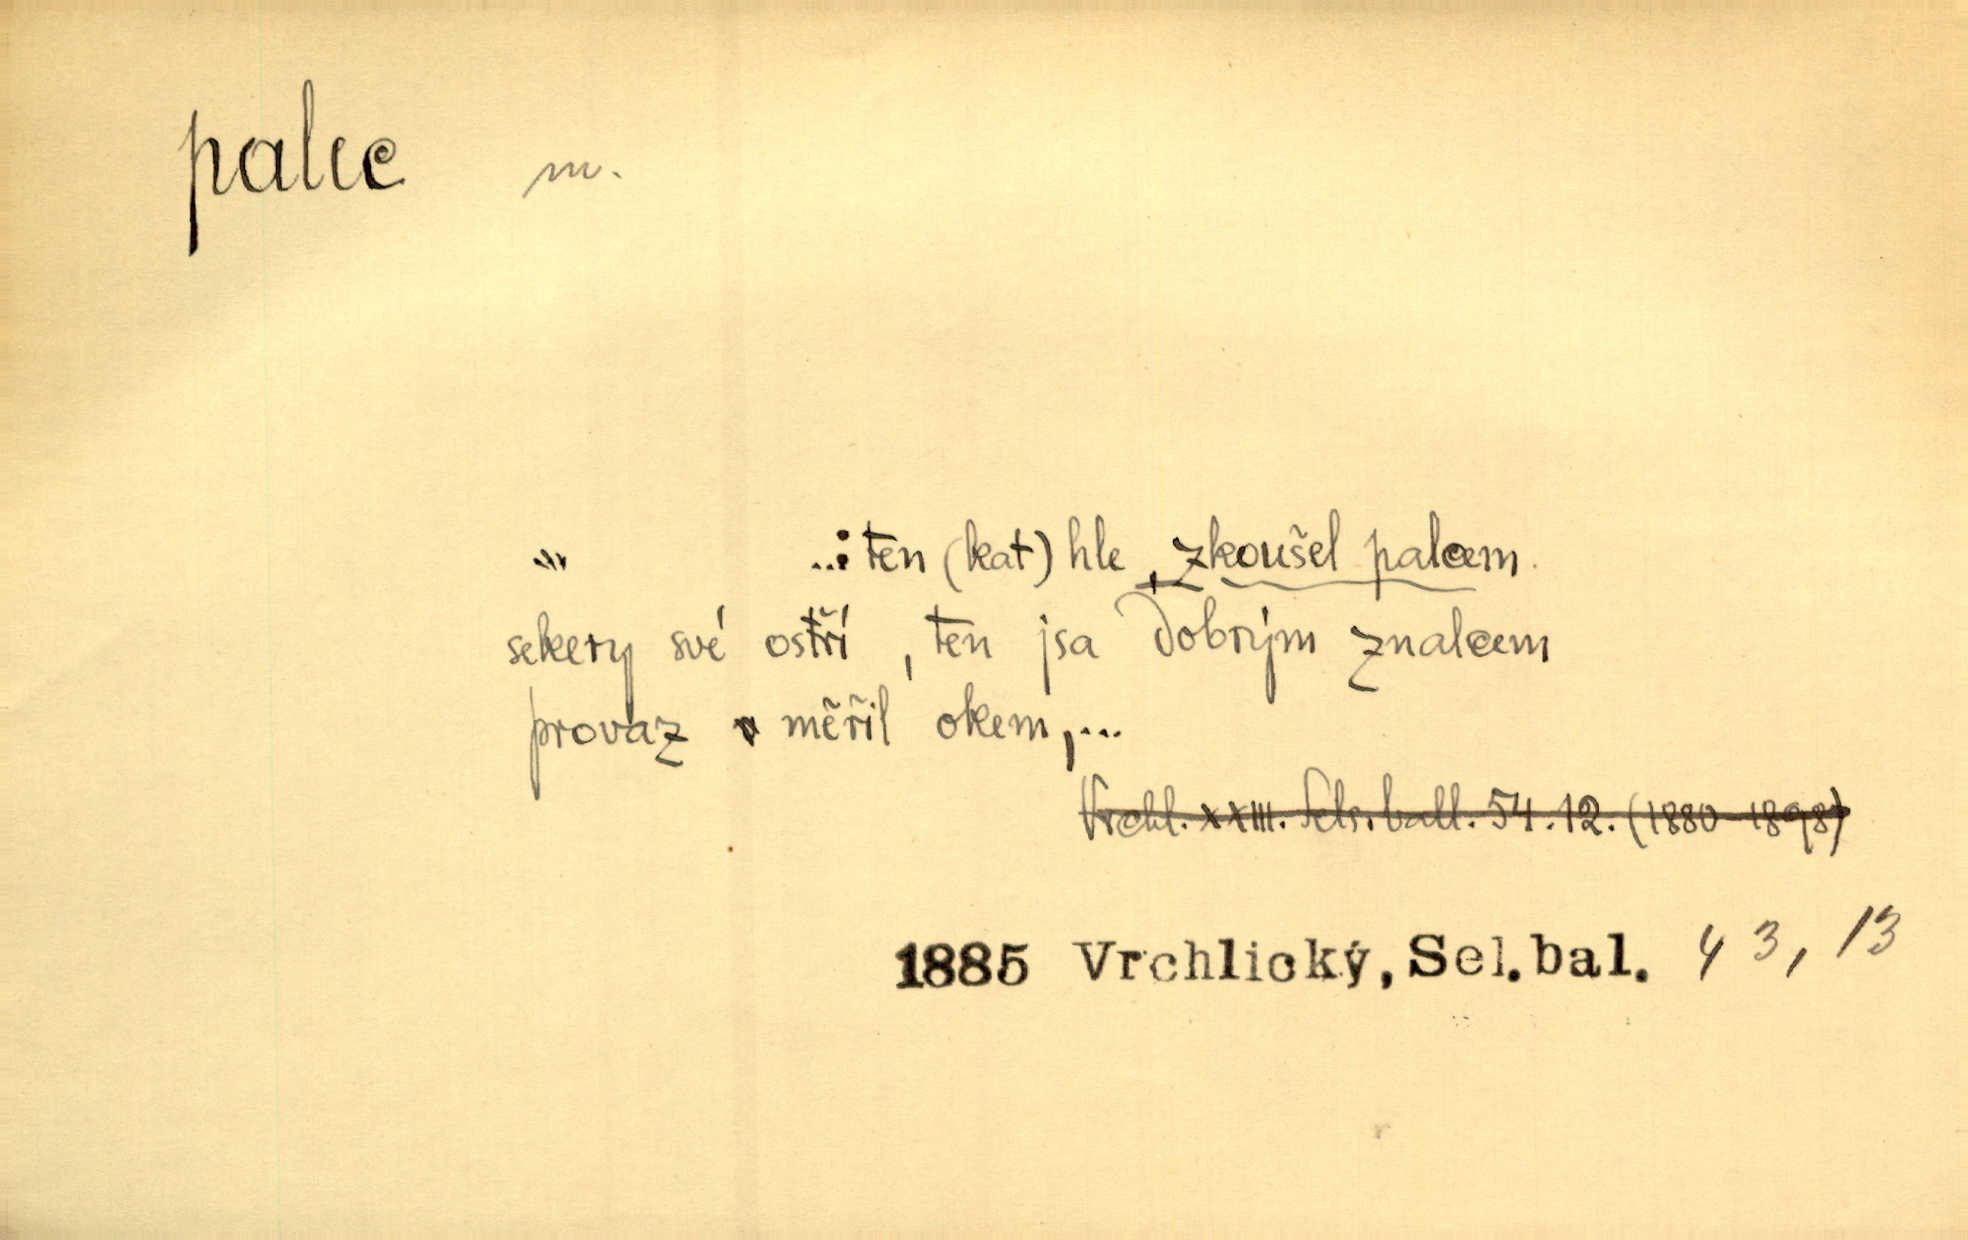 palec m.
...: ten (kat) hle, zkoušel palcem
sekery své ostří, ten jsa dobrým znalcem
provaz měřil okem,...
Vrchl. XXIII. Sels. ball. 54.12. (1880-1898)
1885 Vrchlický, Sel. bal. 43, 13